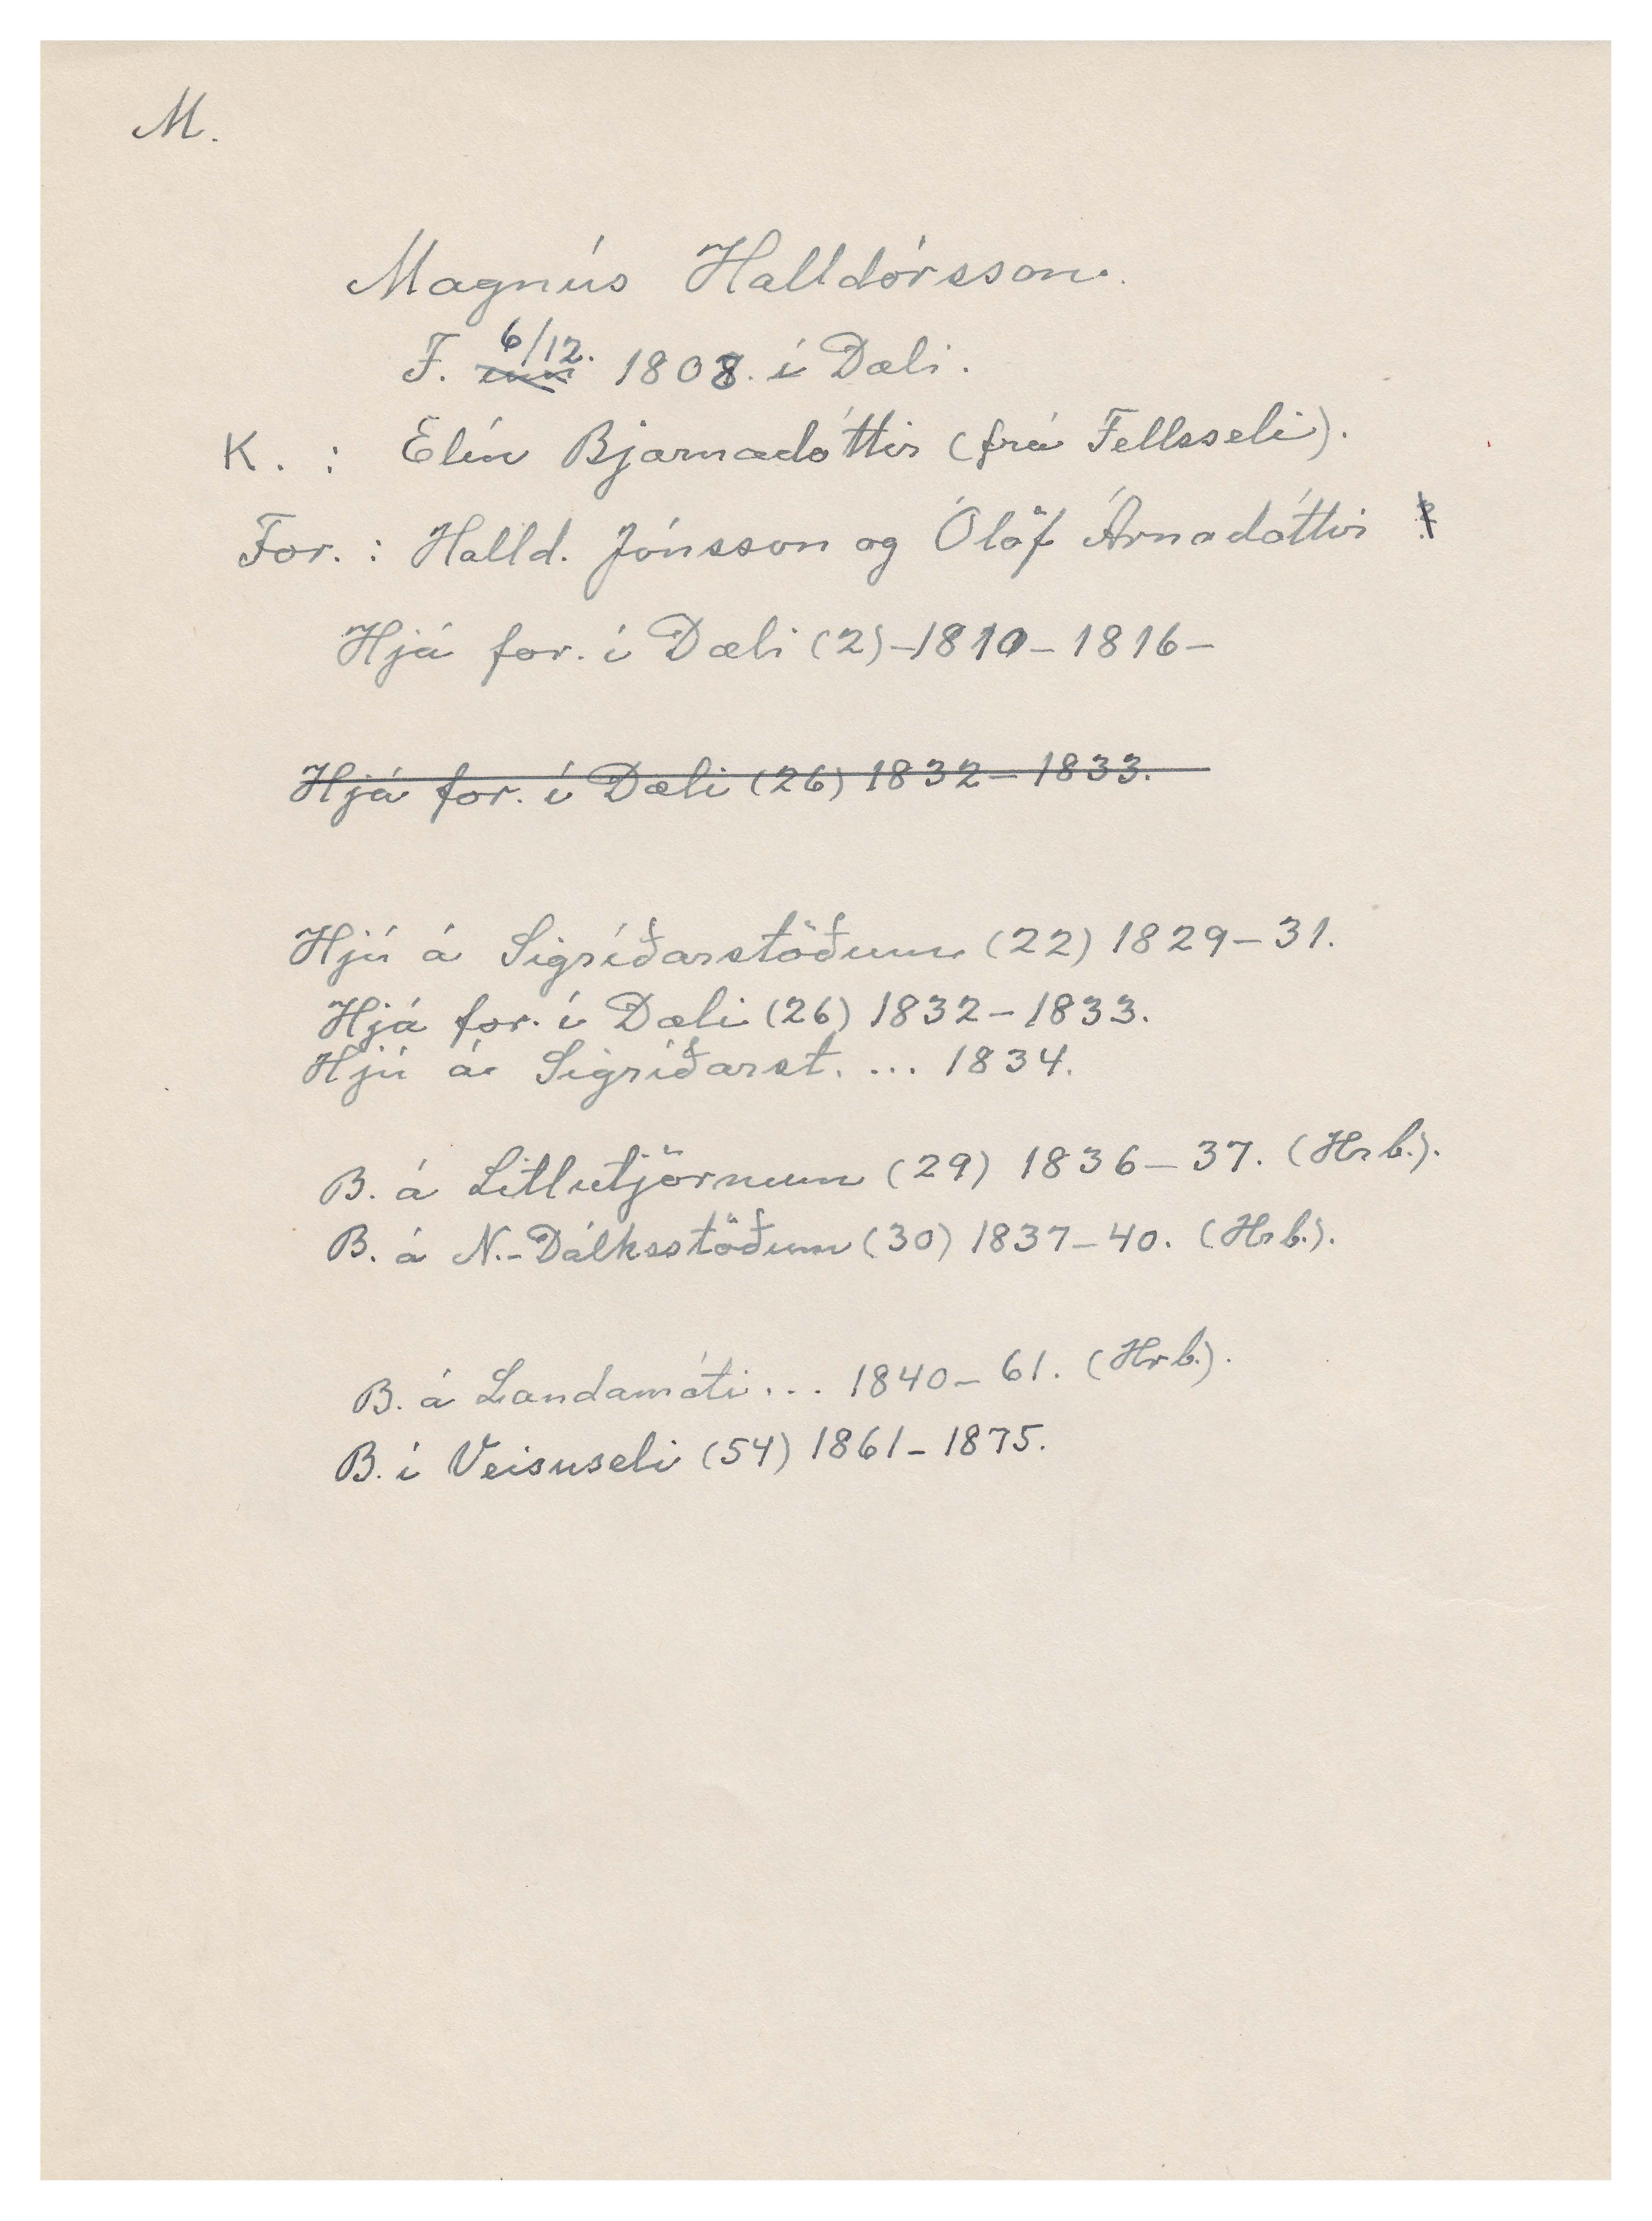 M.
Magnús Halldórsson.
F. 6/12. 1808. í Dæli.
K. : Elín Bjarnadóttir (frá Fellsseli).
For. : Halld. Jónsson og Ólöf Árnadóttir
Hjá for. í Dæli (2) – 1810 – 1816 –
Hjá for. í Dæli (26) 1832 – 1833.
Hjú á Sigríðarstöðum (22) 1829 – 31.
Hjá for. í Dæli (26) 1832 – 1833.
Hjú á Sigríðarst. ... 1834.
B. á Litlutjörnum (29) 1836 – 37. (Hrb.).
B. á N.-Dálksstöðum (30) 1837 – 40. (Hrb.).
B. á Landamóti ... 1840 – 61. (Hrb.).
B. í Veisuseli (54) 1861 – 1875.